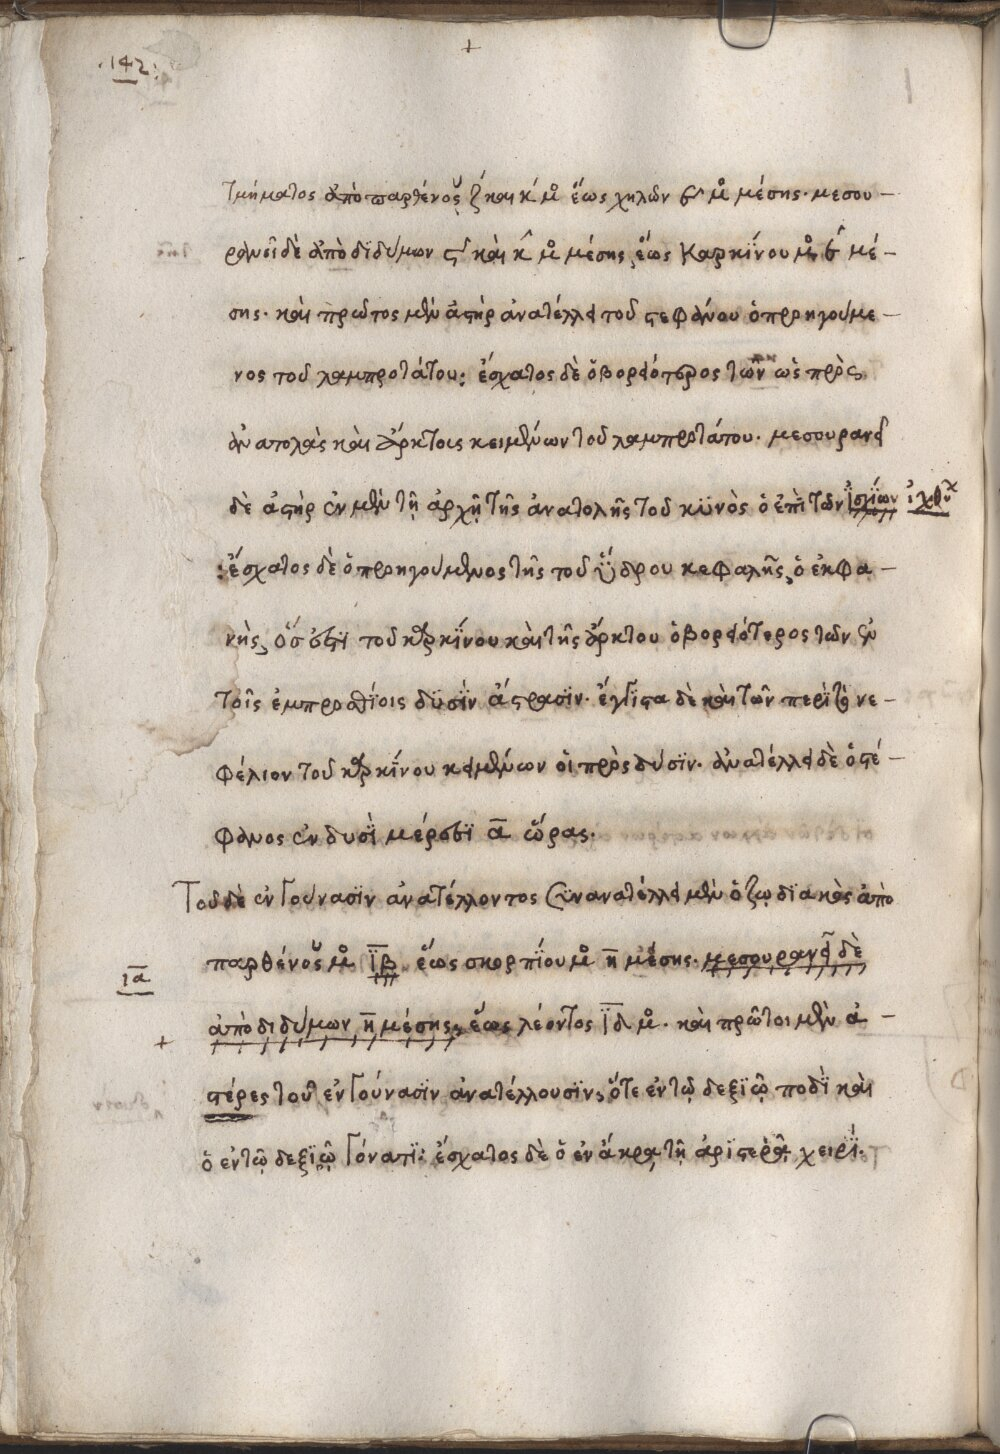 .142.
τμήματος ἀπὸ παρθένου ζ́ καὶ κ́ μο ἕως χηλῶν ϛ μο μέσης. μεσου-
ρανεῖ δὲ ἀπὸ διδύμων ϛ καὶ κ μο μέσης ἕως καρκίνου μο ϛ μέ-
σης. καὶ πρῶτος μὲν ἀστὴρ ἀνατέλλει τοῦ στεφάνου ὁ προηγούμε-
νος τοῦ λαμπροτάτου: ἔσχατος δὲ ὁ βορειότερος τῶν ὡς πρὸς
ἀνατολὰς καὶ ἄρκτοις κειμένων τοῦ λαμπροτάτου. μεσουρανεῖ
δὲ ἀστὴρ ἐν μὲν τῇ ἀρχῇ τῆς ἀνατολῆς τοῦ κϋνὸς ὁ ἐπῒ τῶν ἰ̈σχΐων
:ἔσχατος δὲ ὁ προηγούμενος τῆς τοῦ ὕδρου κεφαλῆς, ὁ ἐκφα-
νὴς, ὅσ ἐστϊ τοῦ καρκΐνου καὶ τῆς ἄρκτου ὁ βορειότερος τῶν ἐν
τοῖς ἐμπροσθΐοις δϋσῒν ἀστρασϊν. ἔγγϊστα δὲ καὶ τῶν περῒ τὸ νε-
φέλιον τοῦ καρκΐνου κειμένων οἱ πρὸς δύσϊν. ἀνατέλλει δὲ ὁ στέ-
φανος ἐν δυσῒ μέρεσϊ α ὥρας.
Τοῦ δὲ ἐν Γούνασϊν ἀνατέλλοντος συνανατέλλει μὲν ὁ ζῳδϊακὸς ἀπὸ
παρθένου μο ϊβ ἕως σκορπΐου μο η μέσης. μεσουρανεῖ δὲ
ια
ἀπὸ διδύμων η μέσης, ἕως λέοντος ϊδ μο. καὶ πρῶτοι μὲν ἀ-
στέρες τοῦ ἐν Γούνασϊν ἀνατέλλουσϊν, ὅτε ἐν τῷ δεξϊῷ ποδῒ καὶ
ὁ ἐν τῷ δεξϊῷ Γόνατϊ: ἔσχατος δὲ ὁ ἐν ἄκρᾳ τῇ ἀρϊστερᾷ χειρΐ.